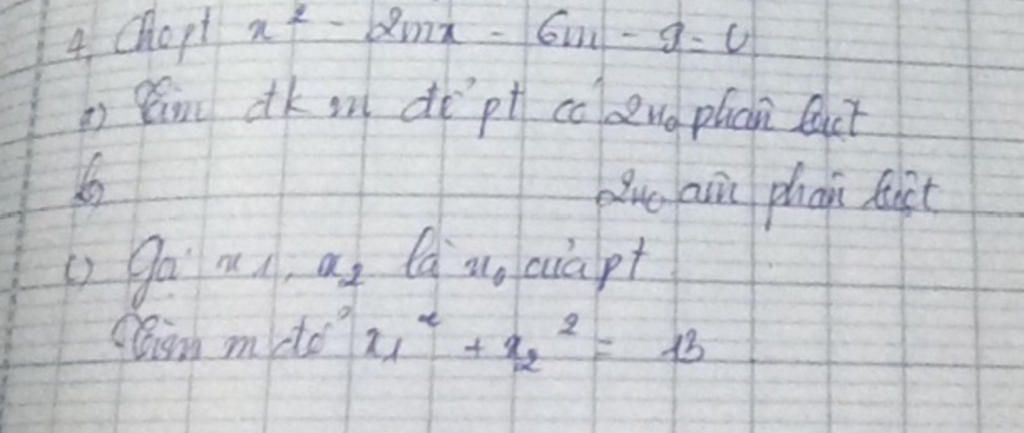 4, Cho pt x² - 2mx - 6m - 9 = 0
a) Tìm đk m để pt có 2 no phân biệt
b) 2 no âm phân biệt
c) Gọi x1, x2 là no của pt
Tìm m để x₁² + x₂² = 13